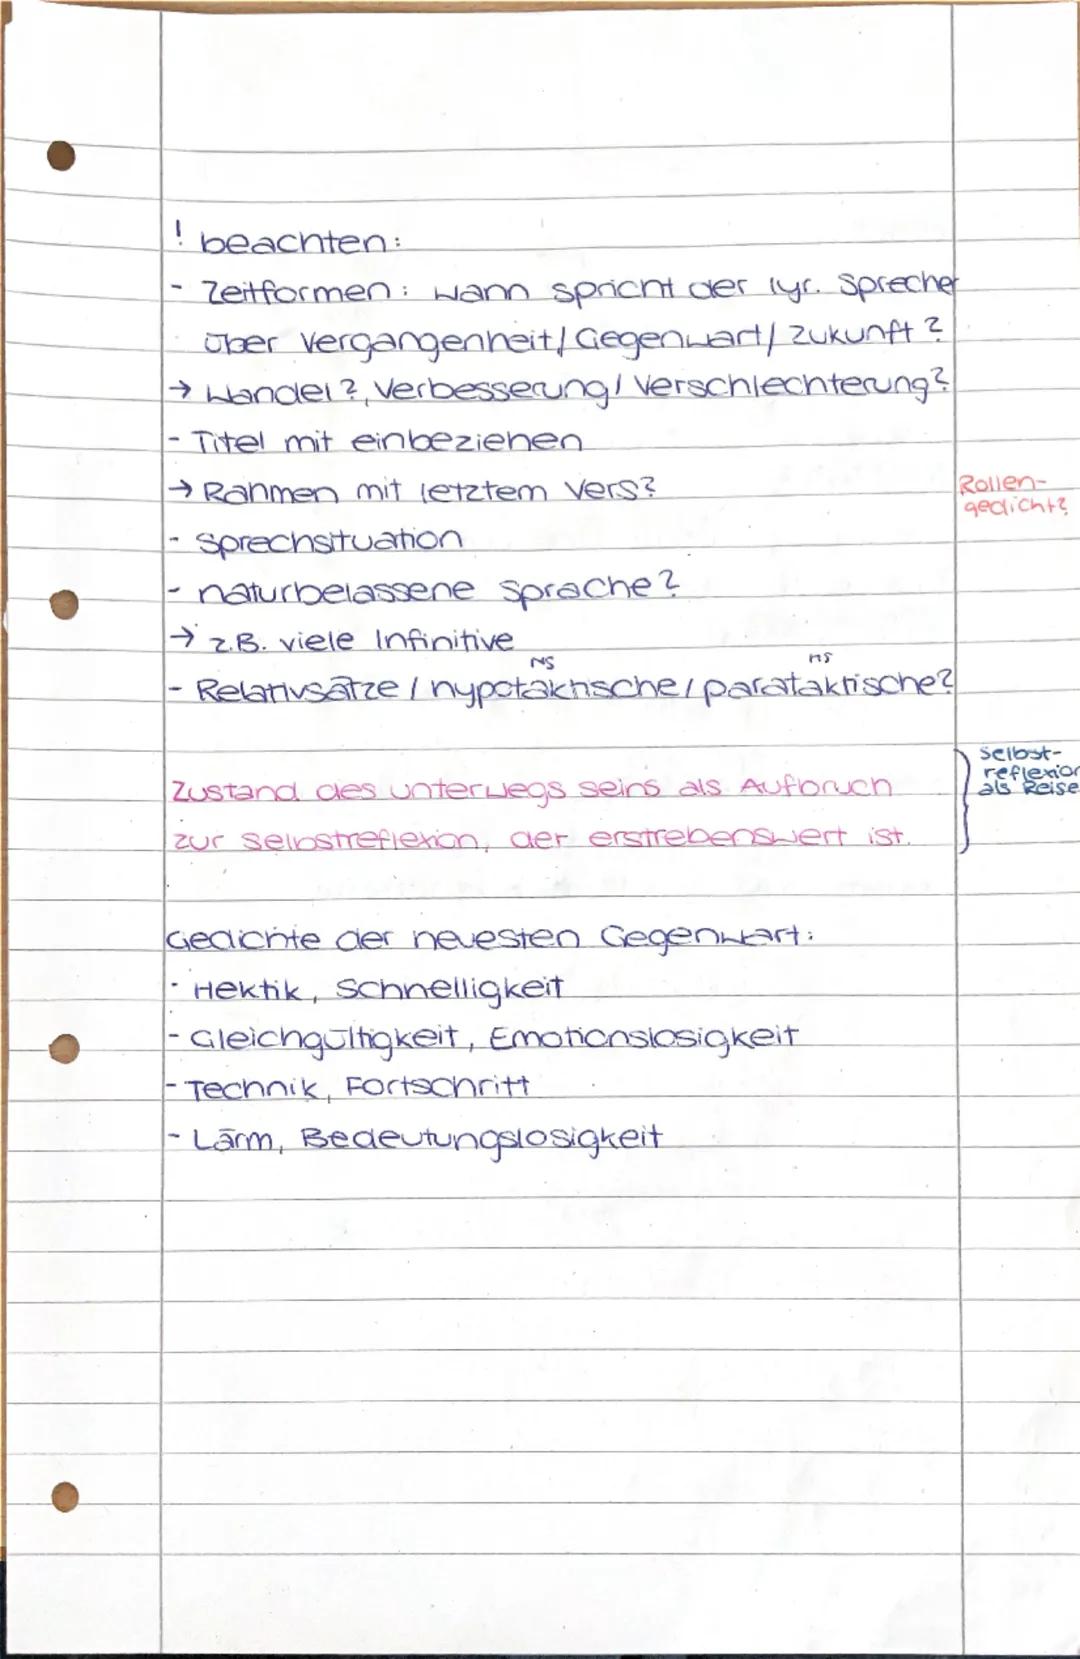 ! beachten:
- Zeitformen: wann spricht der lyr. Sprecher
über Vergangenheit/Gegenwart/Zukunft?
→ Wandel?, Verbesserung/Verschlechterung?
- Titel mit einbeziehen
→ Rahmen mit letztem Vers?
Rollen-
gedicht?
- Sprechsituation
- naturbelassene Sprache?
→ z.B. viele Infinitive
NS
HS
- Relativsätze / hypotaktische/parataktische?
Zustand des unterwegs seins als Aufbruch
zur Selbstreflexion, der erstrebenswert ist.
Selbst-
reflexion
als Reise
Gedichte der neuesten Gegenwart:
- Hektik, Schnelligkeit
- Gleichgültigkeit, Emotionslosigkeit
- Technik, Fortschritt
- Lärm, Bedeutungslosigkeit